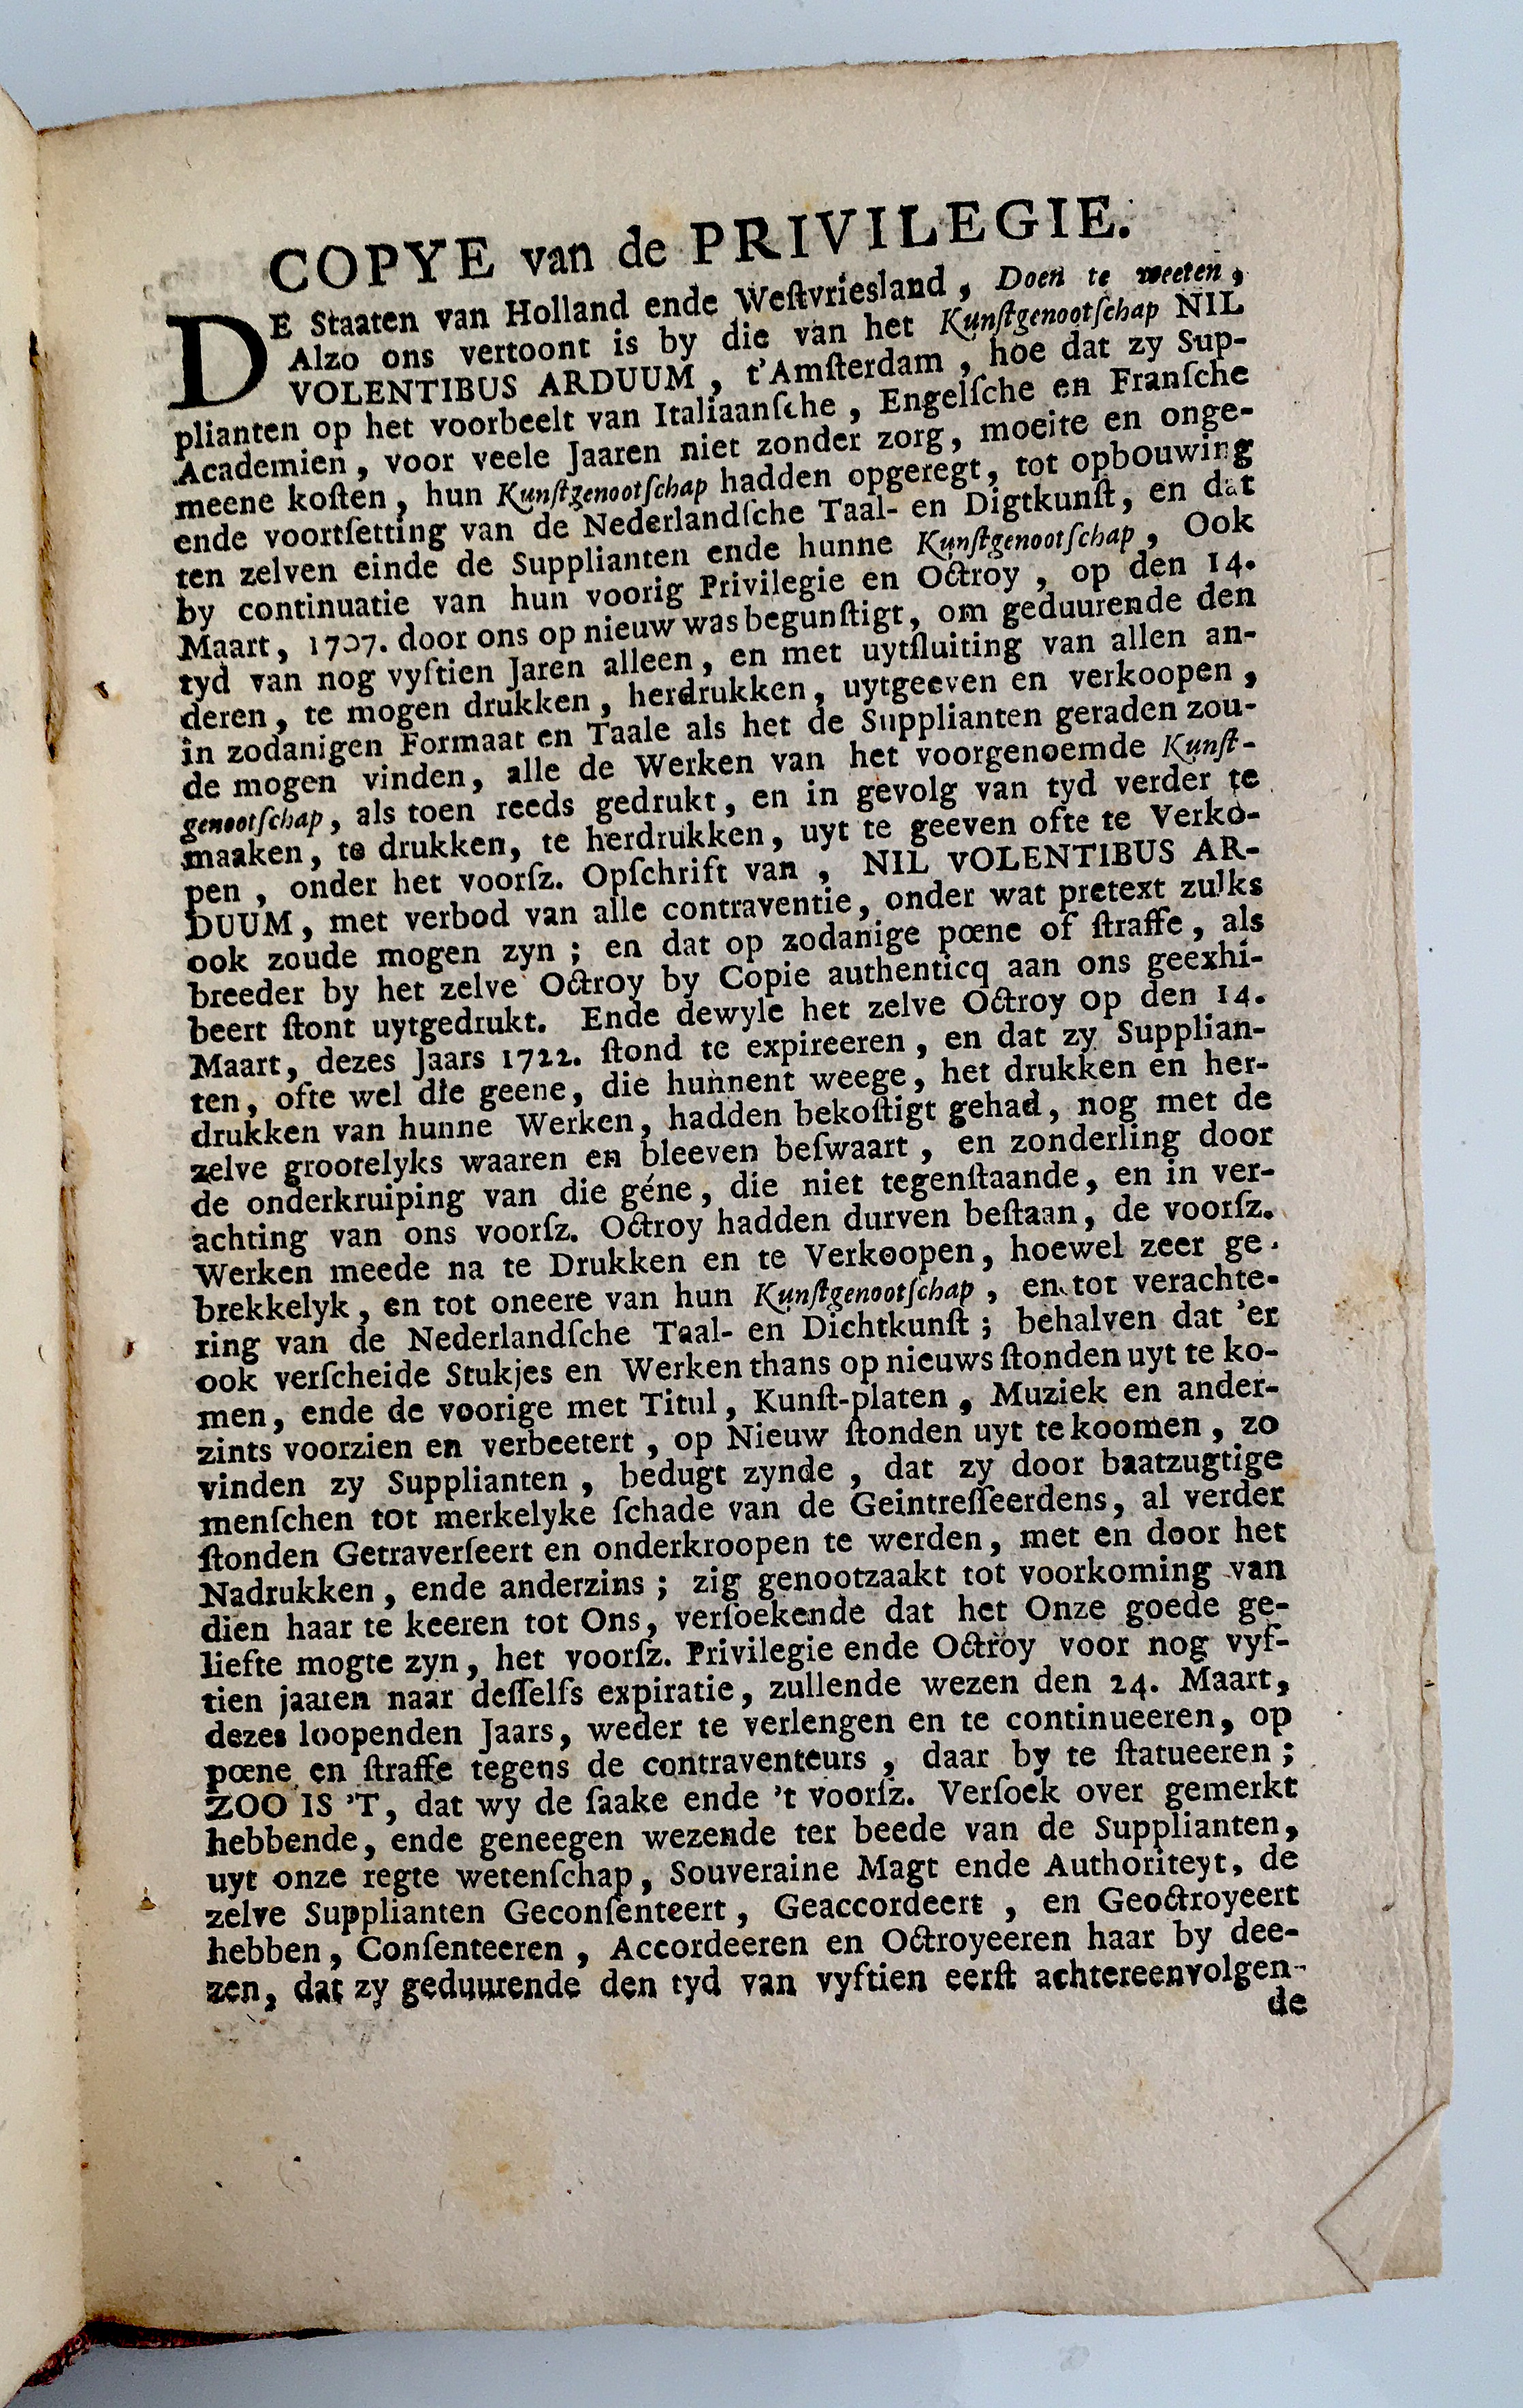 COPYE van de PRIVILEGIE.
DE Staaten van Holland ende Weſtvriesland, Doen te weeten,
Alzo ons vertoont is by die van het Kunſtgenootſchap NIL
VOLENTIBUS ARDUUM, t'Amſterdam, hoe dat zy Sup-
plianten op het voorbeelt van Italiaanſche, Engelſche en Franſche
Academien, voor veele Jaaren niet zonder zorg, moeite en onge-
meene koſten, hun Kunſtgenootſchap hadden opgeregt, tot opbouwing
ende voortſetting van de Nederlandſche Taal- en Digtkunſt, en dat
ten zelven einde de Supplianten ende hunne Kunſtgenootſchap, Ook
by continuatie van hun voorig Privilegie en Octroy, op den 14.
Maart, 1707. door ons op nieuw was begunſtigt, om geduurende den
tyd van nog vyftien Jaren alleen, en met uytſluiting van allen an-
deren, te mogen drukken, herdrukken, uytgeeven en verkoopen,
in zodanigen Formaat en Taale als het de Supplianten geraden zou-
de mogen vinden, alle de Werken van het voorgenoemde Kunſt-
genootſchap, als toen reeds gedrukt, en in gevolg van tyd verder te
maaken, te drukken, te herdrukken, uyt te geeven ofte te Verko-
pen, onder het voorſz. Opſchrift van, NIL VOLENTIBUS AR-
DUUM, met verbod van alle contraventie, onder wat pretext zulks
ook zoude mogen zyn; en dat op zodanige pœne of ſtraffe, als
breeder by het zelve Octroy by Copie authenticq aan ons geexhi-
beert ſtont uytgedrukt. Ende dewyle het zelve Octroy op den 14.
Maart, dezes Jaars 1722. ſtond te expireeren, en dat zy Supplian-
ten, ofte wel die geene, die hunnent weege, het drukken en her-
drukken van hunne Werken, hadden bekoſtigt gehad, nog met de
zelve grootelyks waaren en bleeven beſwaart, en zonderling door
de onderkruiping van die géne, die niet tegenſtaande, en in ver-
achting van ons voorſz. Octroy hadden durven beſtaan, de voorſz.
Werken meede na te Drukken en te Verkoopen, hoewel zeer ge-
brekkelyk, en tot oneere van hun Kunſtgenootſchap, en tot verachte-
ring van de Nederlandſche Taal- en Dichtkunſt; behalven dat 'er
ook verſcheide Stukjes en Werken thans op nieuws ſtonden uyt te ko-
men, ende de voorige met Titul, Kunſt-platen, Muziek en ander-
zints voorzien en verbeetert, op Nieuw ſtonden uyt te koomen, zo
vinden zy Supplianten, bedugt zynde, dat zy door baatzugtige
menſchen tot merkelyke ſchade van de Geintreſſeerdens, al verder
ſtonden Getraverſeert en onderkroopen te werden, met en door het
Nadrukken, ende anderzins; zig genootzaakt tot voorkoming van
dien haar te keeren tot Ons, verſoekende dat het Onze goede ge-
liefte mogte zyn, het voorſz. Privilegie ende Octroy voor nog vyf-
tien jaaren naar deſſelfs expiratie, zullende wezen den 24. Maart,
dezes loopenden Jaars, weder te verlengen en te continueeren, op
pœne en ſtraffe tegens de contraventeurs, daar by te ſtatueeren;
ZOO IS 'T, dat wy de ſaake ende 't voorſz. Verſoek over gemerkt
hebbende, ende geneegen wezende ter beede van de Supplianten,
uyt onze regte wetenſchap, Souveraine Magt ende Authoriteyt, de
zelve Supplianten Geconſenteert, Geaccordeert, en Geoctroyeert
hebben, Conſenteeren, Accordeeren en Octroyeeren haar by dee-
zen, dat zy geduurende den tyd van vyftien eerſt achtereenvolgen-
de